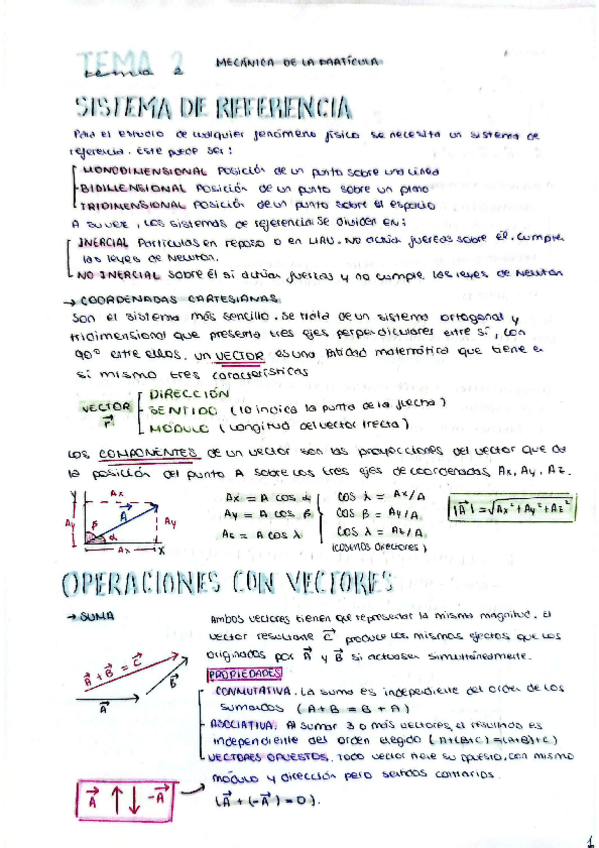 TEMA 2
tema 2 MECÁNICA DE LA PARTÍCULA
SISTEMA DE REFERENCIA
Para el estudio de cualquier fenómeno físico se necesita un sistema de
referencia. Este puede ser:
MONODIMENSIONAL Posición de un punto sobre una línea
BIDIMENSIONAL Posición de un punto sobre un plano
TRIDIMENSIONAL Posición de un punto sobre el espacio
A su vez, los sistemas de referencia se dividen en:
INERCIAL Partículas en reposo o en MRU. No actúa fuerzas sobre él. Cumple
las leyes de Newton.
NO INERCIAL Sobre él si actúan fuerzas y no cumple las leyes de Newton
→ COORDENADAS CARTESIANAS
Son el sistema más sencillo. Se trata de un sistema ortogonal y
tridimensional que presenta tres ejes perpendiculares entre sí, con
90° entre ellos. Un VECTOR es una entidad matemática que tiene en
si mismo tres características
DIRECCIÓN
VECTOR SENTIDO (lo indica la punta de la flecha)
r⃗ MÓDULO (Longitud del vector (recta)
Los COMPONENTES de un vector son las proyecciones del vector que da
la posición del punto A sobre los tres ejes de coordenadas, Ax, Ay, Az.
Y Ax
Ay β A⃗ α Ay
Ax X
Ax = A cos α
Ay = A cos β
Az = A cos λ
cos λ = Ax/A
cos β = Ay/A
cos λ = Az/A
(cosenos directores)
|A⃗| = √Ax² + Ay² + Az²
OPERACIONES CON VECTORES
→ SUMA
Ambos vectores tienen que representar la misma magnitud. El
vector resultante C⃗ produce los mismos efectos que los
originados por A⃗ y B⃗ si actuasen simultáneamente.
A⃗ + B⃗ = C⃗
B⃗
A⃗
PROPIEDADES
CONMUTATIVA. La suma es independiente del orden de los
sumandos (A + B = B + A)
ASOCIATIVA. Al sumar 3 o más vectores, el resultado es
independiente del orden elegido (A+(B+C) = (A+B)+C)
VECTORES OPUESTOS. Todo vector tiene su opuesto, con mismo
módulo y dirección pero sentidos contrarios.
(A⃗ + (-A⃗) = 0).
A⃗ ↑↓ -A⃗
1